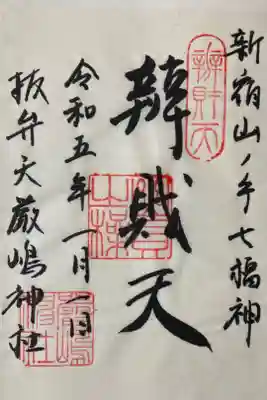 新宿山ノ手七福神
辨財天
辨財天
令和五年一月一日
抜弁天厳嶋神社